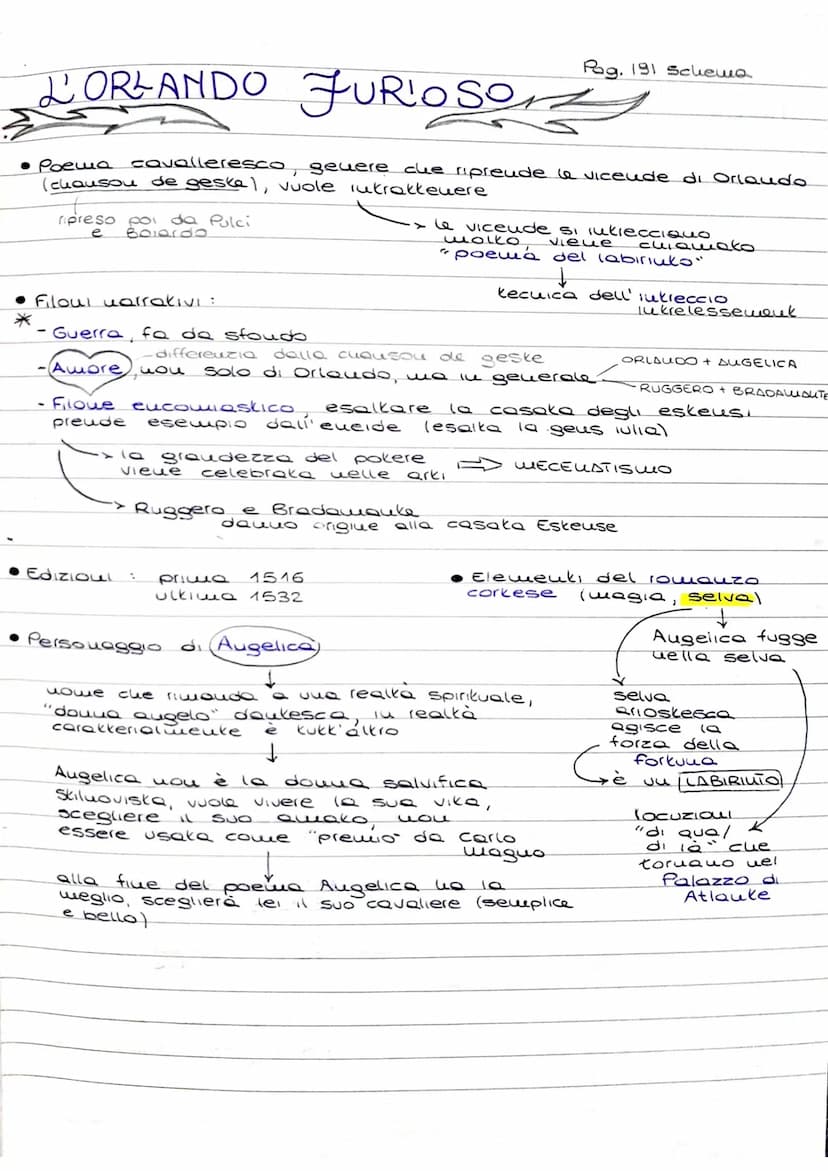 Pag. 191 schema
L'ORLANDO FURIOSO
• Poema cavalleresco, genere che riprende le vicende di Orlando
(chanson de geste), vuole intrattenere
ripreso poi da Pulci
e Boiardo
-> le vicende si intrecciano
molto, viene chiamato
"poema del labirinto"
↓
tecnica dell'intreccio
intrelessement
• Filoni narrativi :
*
- Guerra, fa da sfondo
- differenzia dalla chanson de geste
- Amore, non solo di Orlando, ma in generale
ORLANDO + ANGELICA
RUGGERO + BRADAMANTE
- Filone encomiastico, esaltare la casata degli estensi
prende esempio dall'eneide (esalta la gens iulia)
-> la grandezza del potere
viene celebrata nelle arti => MECENATISMO
-> Ruggero e Bradamante
danno origine alla casata Estense
• Edizioni : prima 1516
ultima 1532
• Elementi del romanzo
cortese (magia, selva)
↓
Angelica fugge
nella selva
selva
ariostesca
agisce la
forza della
fortuna
-> è un LABIRINTO
locuzioni
"di qua/
di là" che
tornano nel
Palazzo di
Atlante
• Personaggio di Angelica
↓
nome che rimanda a una realtà spirituale,
"donna angelo" dantesca, in realtà
caratterialmente è tutt'altro
↓
Angelica non è la donna salvifica
stilnovista, vuole vivere la sua vita,
scegliere il suo amato, non
essere usata come "premio" da Carlo
Magno
↓
alla fine del poema Angelica ha la
meglio, sceglierà lei il suo cavaliere (semplice
e bello)